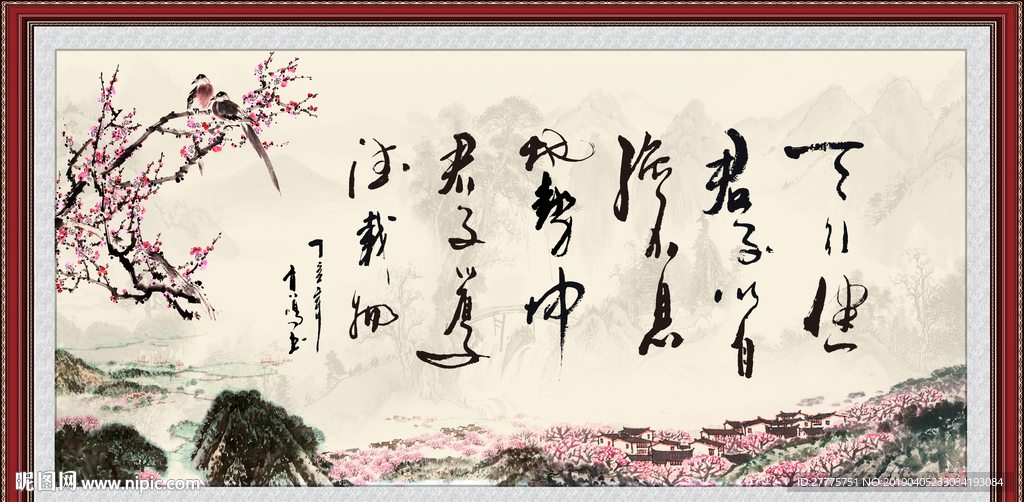 天行健
君子以自
强不息
地势坤
君子以厚
德载物
昵图网 www.nipic.com
ID:27775751 NO:20190405233034193084